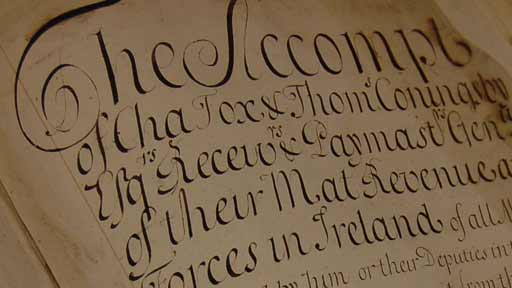 The Accompt
of Cha Fox & Thom^s Coningsby
Esq^rs Receiv^rs & Paymast^rs Gen^
of their Mat Revenue a
Forces in Ireland of all M
by him or their Deputies in t
from th